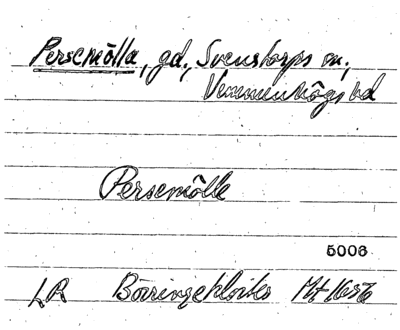 Persemölla, gd., Svenstorps sn,
Vemmenhögs hd
Persemölle
5006
LR Börringekloster Mt 1656